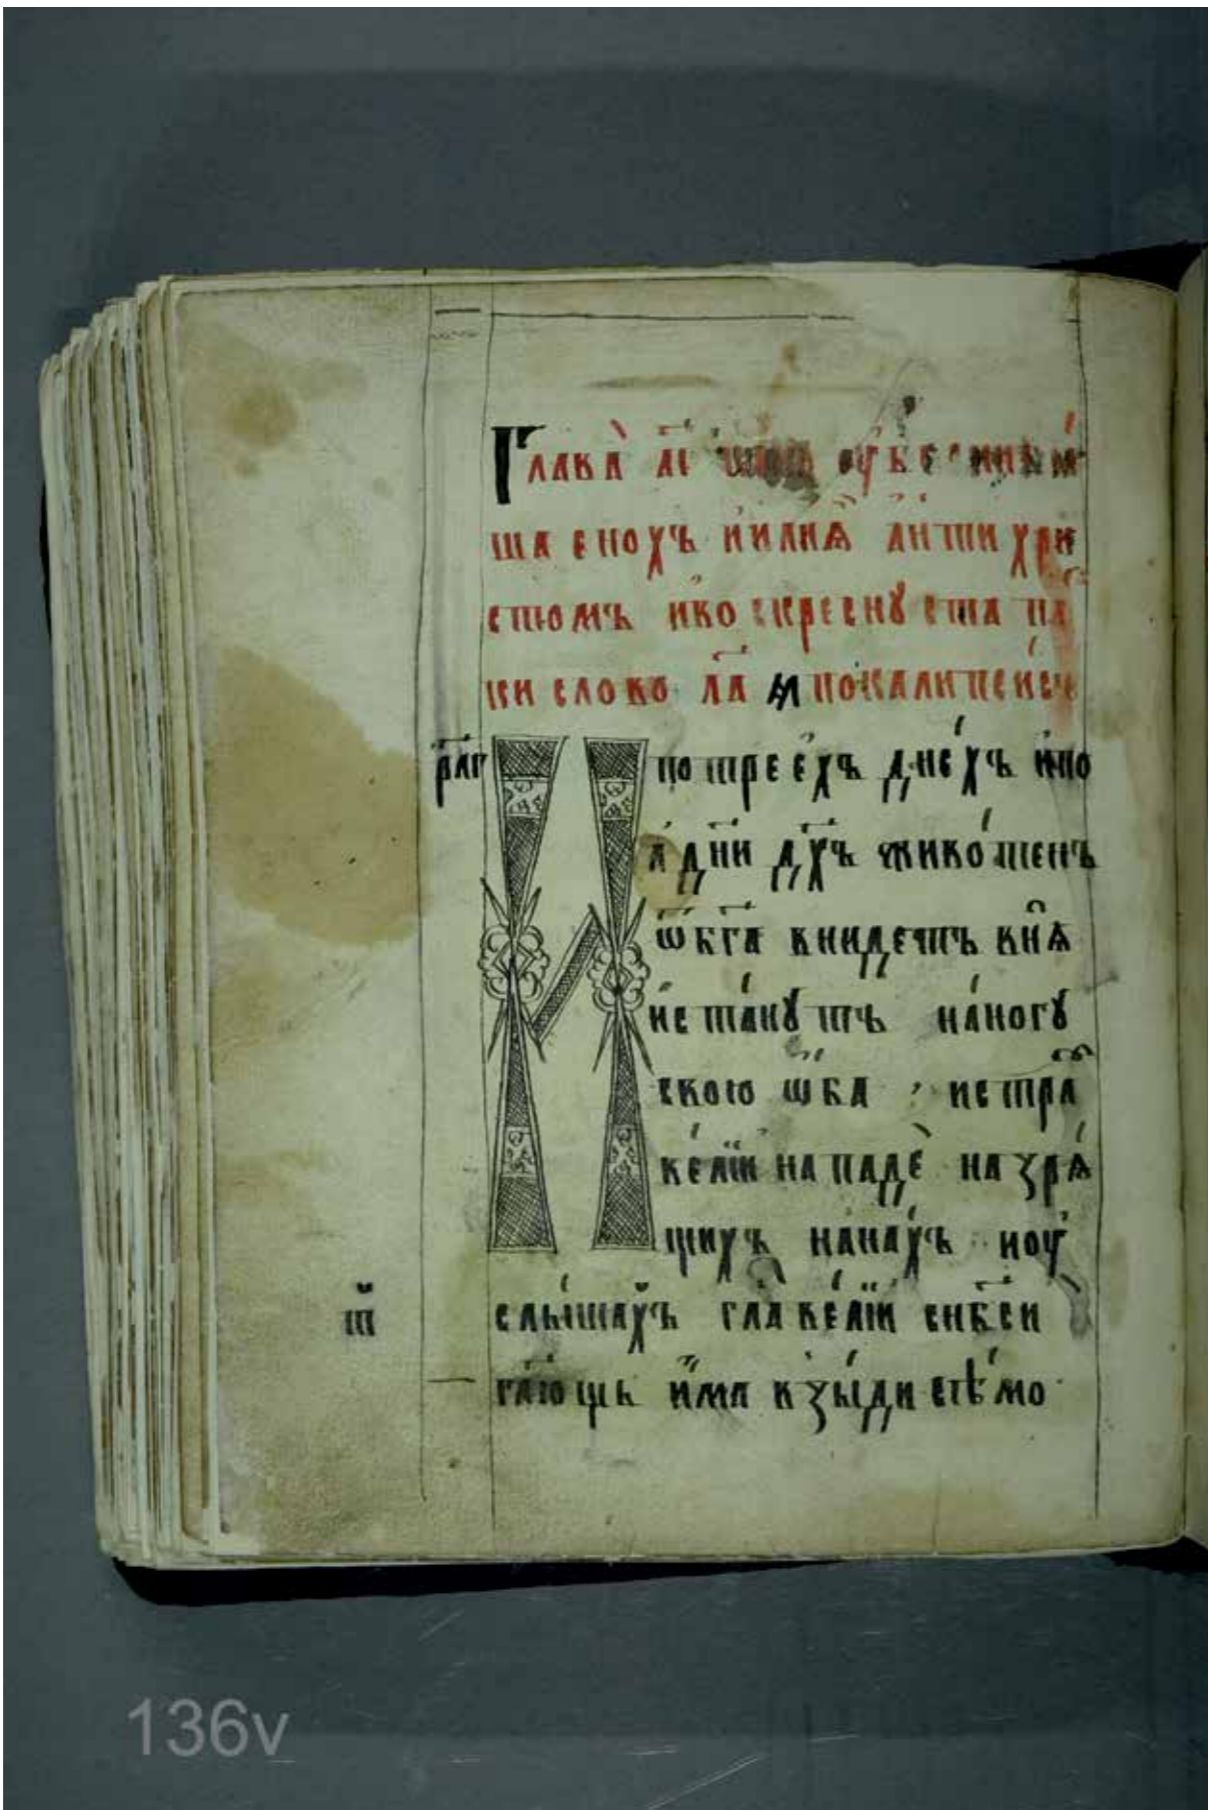 Глава̀ а҃і убїенны
ша енохъ и҆илиѧ̑ а҆нтихри
стомъ и҆ко скреснꙋста па
ки слово л҃а а҆покалипсис
рл҃г И потрее́хъ дне́хъ и҆по
л дн҃и дх҃ъ живо́тенъ
ѿ бг҃а внидетъ внѧ̑
и҆ста́нꙋтъ на́ногꙋ
своею ѡ҆ба , истра
ве́лїи нападѐ на зрѧ́
щихъ на́нахъ ноу҆
т҃ слы́шахъ гла ве́лїи снб҃си
гл҃ющь и҆́ма взы́дистѣ́мо
136v